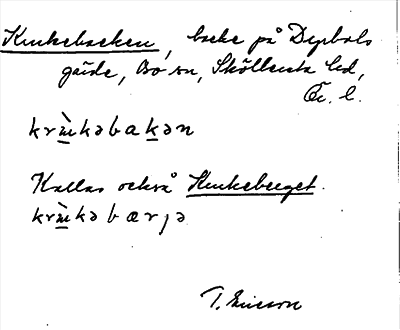 Krukebacken, backe på Dypbols
gärde, Bo sn, Sköllersta hd,
Ör. l.
krɯ̀kəbakən
Kallas också Krukeberget.
krɯ̀kəbærjə
T. Ericson